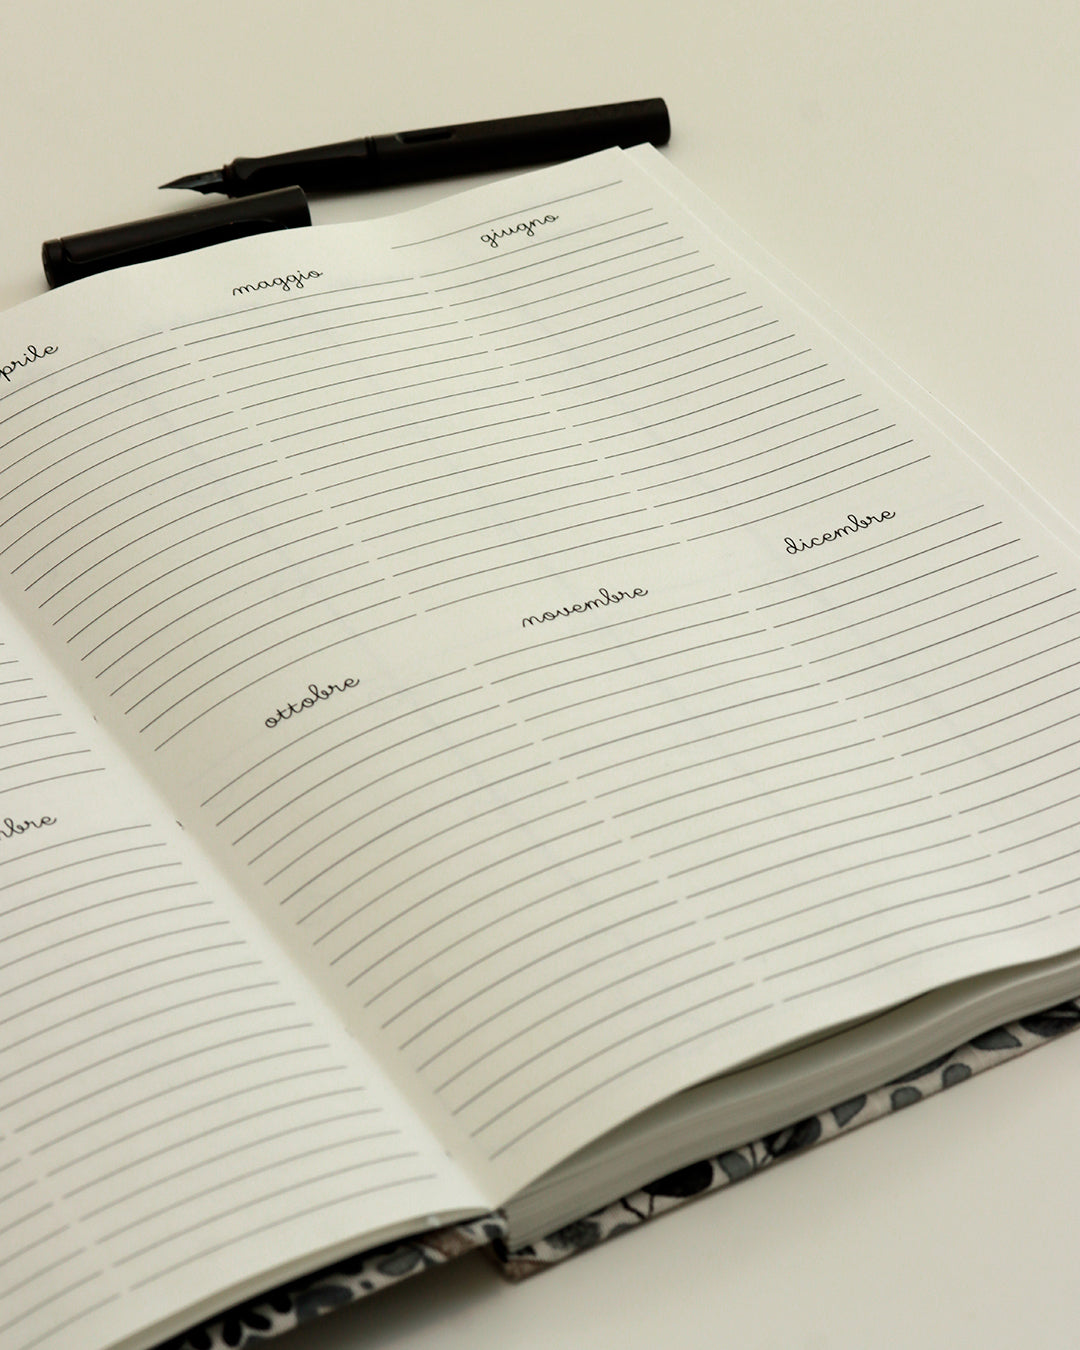 prile
maggio
giugno
ottobre
novembre
dicembre